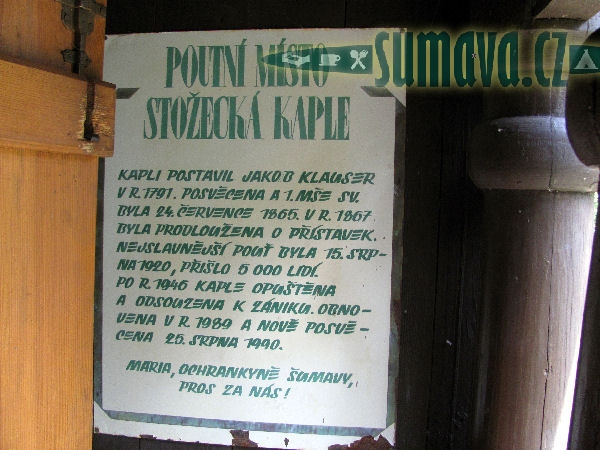 POUTNÍ MÍSTO
STOŽECKÁ KAPLE
šumava.cz
KAPLI POSTAVIL JAKOB KLAUSER
V R. 1791. POSVĚCENA A 1. MŠE SV.
BYLA 24. ČERVENCE 1865. V R. 1867
BYLA PRODLOUŽENA O PŘÍSTAVEK.
NEJSLAVNĚJŠÍ POUŤ BYLA 15. SRP-
NA 1920, PŘIŠLO 5 000 LIDÍ.
PO R. 1946 KAPLE OPUŠTĚNA
A ODSOUZENA K ZÁNIKU. OBNO-
VENA V R. 1989 A NOVĚ POSVĚ-
CENA 25. SRPNA 1990.
MARIA, OCHRANKYNĚ ŠUMAVY,
PROS ZA NÁS!